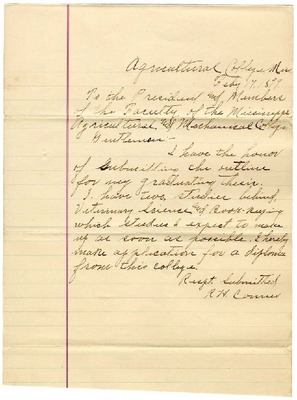 Agricultural College Miss
Feby 17, 18
To the President & Members
of the Faculty of the Mississippi
Agricultural & Mechanical College
Gentlemen:
I have the honor
of submitting the outline
for my graduating thesis.
I have two studies behind,
Veterinary Science & Book-keeping
which studies I expect to make
up as soon as possible. I hereby
make application for a diploma
from this college.
Respt. Submitted
R. H. Conner